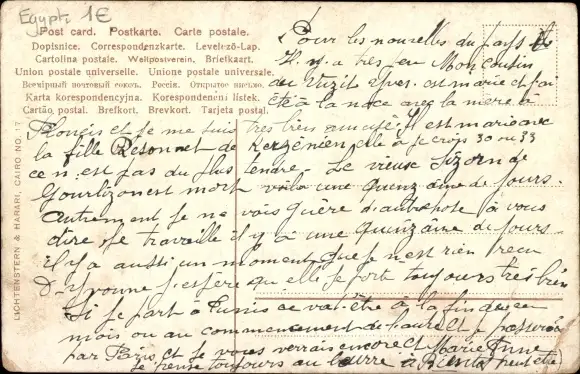 Egypt: 1€
Post card. Postkarte. Carte postale.
Dopisnice. Correspondenzkarte. Levelező-Lap.
Cartolina postale. Weltpostverein. Briefkaart.
Union postale universelle. Unione postale universale.
Всемірный почтовый союзъ. Россія. Открытое письмо.
Karta korespondencyjna. Korespondenční lístek.
Cartão postal. Brefkort. Brevkort. Tarjeta postal.
LICHTENSTERN & HARARI, CAIRO NO. 17
Pour les nouvelles du pays
il n'y a très peu Mon cousin
du Yves est marié et j'ai
été à la noce avec la mère à
François et je me suis très bien amusé. Il est marié avec
la fille de elle a je crois 30 ou 33
ce n'est pas du plus tendre. Le vieux de
est mort voilà une quinzaine de jours.
Autrement je ne vois guère d'autre chose à vous
dire je travaille il y a une quinzaine de jours
il y a aussi un moment que je n'est rien reçu
d'Yvonne j'espère qu'elle se porte toujours très bien
Si je part à Tunis ce vat être à la fin de ce
mois ou au commencement de l'autre et je passerai
par Paris et je vous verrais encore et Marie Anne
je pense toujours au beurre à peut être